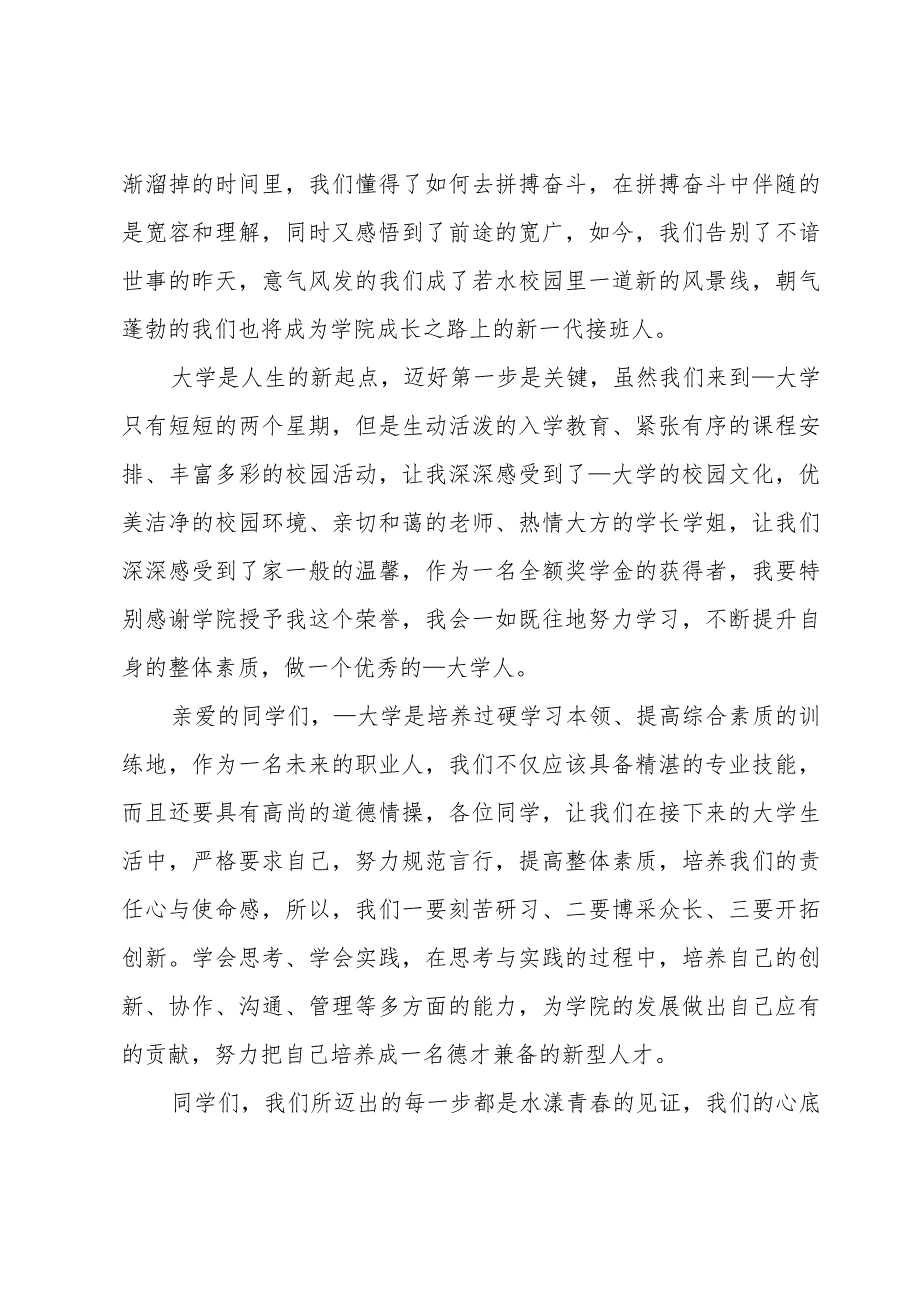 渐溜掉的时间里，我们懂得了如何去拼搏奋斗，在拼搏奋斗中伴随的
是宽容和理解，同时又感悟到了前途的宽广，如今，我们告别了不谙
世事的昨天，意气风发的我们成了若水校园里一道新的风景线，朝气
蓬勃的我们也将成为学院成长之路上的新一代接班人。
大学是人生的新起点，迈好第一步是关键，虽然我们来到—大学
只有短短的两个星期，但是生动活泼的入学教育、紧张有序的课程安
排、丰富多彩的校园活动，让我深深感受到了—大学的校园文化，优
美洁净的校园环境、亲切和蔼的老师、热情大方的学长学姐，让我们
深深感受到了家一般的温馨，作为一名全额奖学金的获得者，我要特
别感谢学院授予我这个荣誉，我会一如既往地努力学习，不断提升自
身的整体素质，做一个优秀的—大学人。
亲爱的同学们，—大学是培养过硬学习本领、提高综合素质的训
练地，作为一名未来的职业人，我们不仅应该具备精湛的专业技能，
而且还要具有高尚的道德情操，各位同学，让我们在接下来的大学生
活中，严格要求自己，努力规范言行，提高整体素质，培养我们的责
任心与使命感，所以，我们一要刻苦研习、二要博采众长、三要开拓
创新。学会思考、学会实践，在思考与实践的过程中，培养自己的创
新、协作、沟通、管理等多方面的能力，为学院的发展做出自己应有
的贡献，努力把自己培养成一名德才兼备的新型人才。
同学们，我们所迈出的每一步都是水漾青春的见证，我们的心底